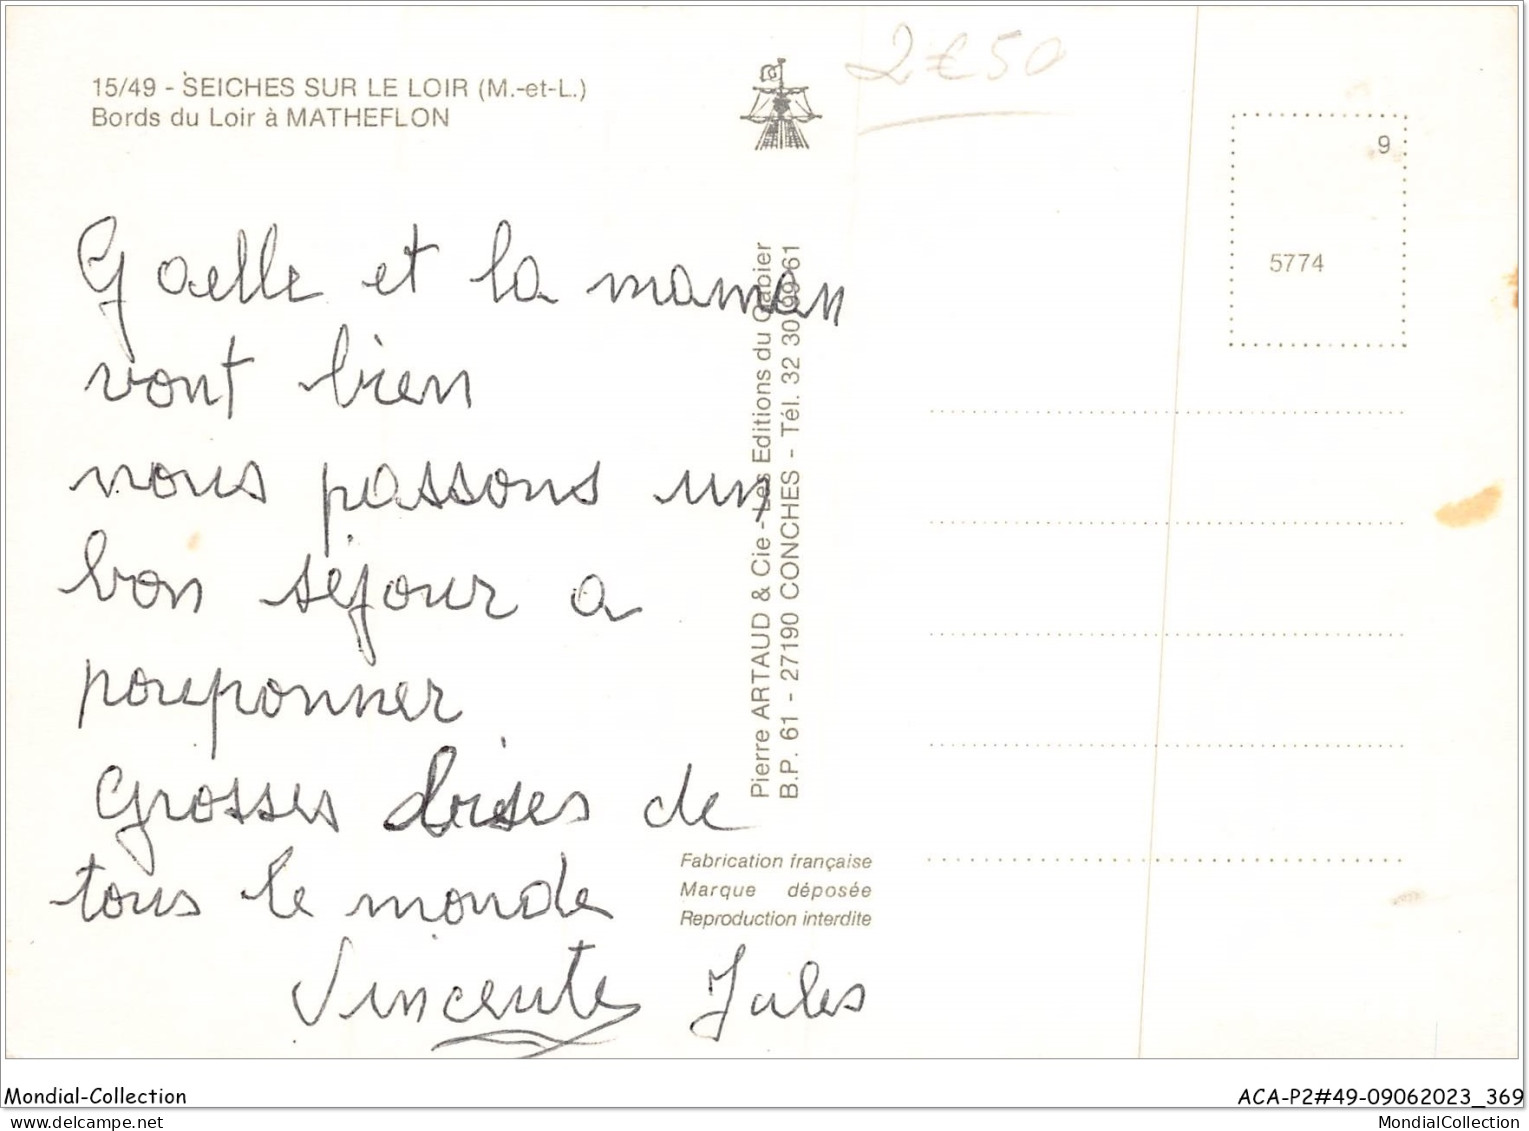 15/49 - SEICHES SUR LE LOIR (M.-et-L.)
Bords du Loir à MATHEFLON
2€50
9
5774
Gaelle et la maman
vont bien
nous passons un
bon séjour a
pouponner
Grosses bises de
tous le monde
Vincente Jules
Pierre ARTAUD & Cie - Les Editions du Gabier
B.P. 61 - 27190 CONCHES - Tél. 32 30 99 61
Fabrication française
Marque déposée
Reproduction interdite
Mondial-Collection
ACA-P2#49-09062023_369
MondialCollection